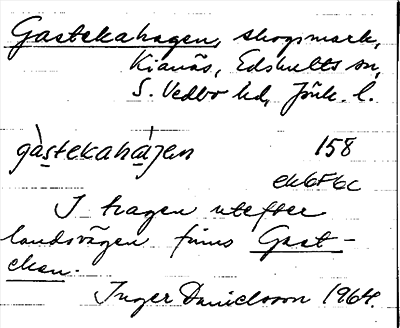 Gastekahagen, skogsmark,
Kianäs, Edshults sn,
S. Vedbo hd, Jönk. l.
gàstekahájen 158
ek 6F6c
I hagen utefter
landsvägen finns Gast-
eken.
Inger Danielsson 1964.